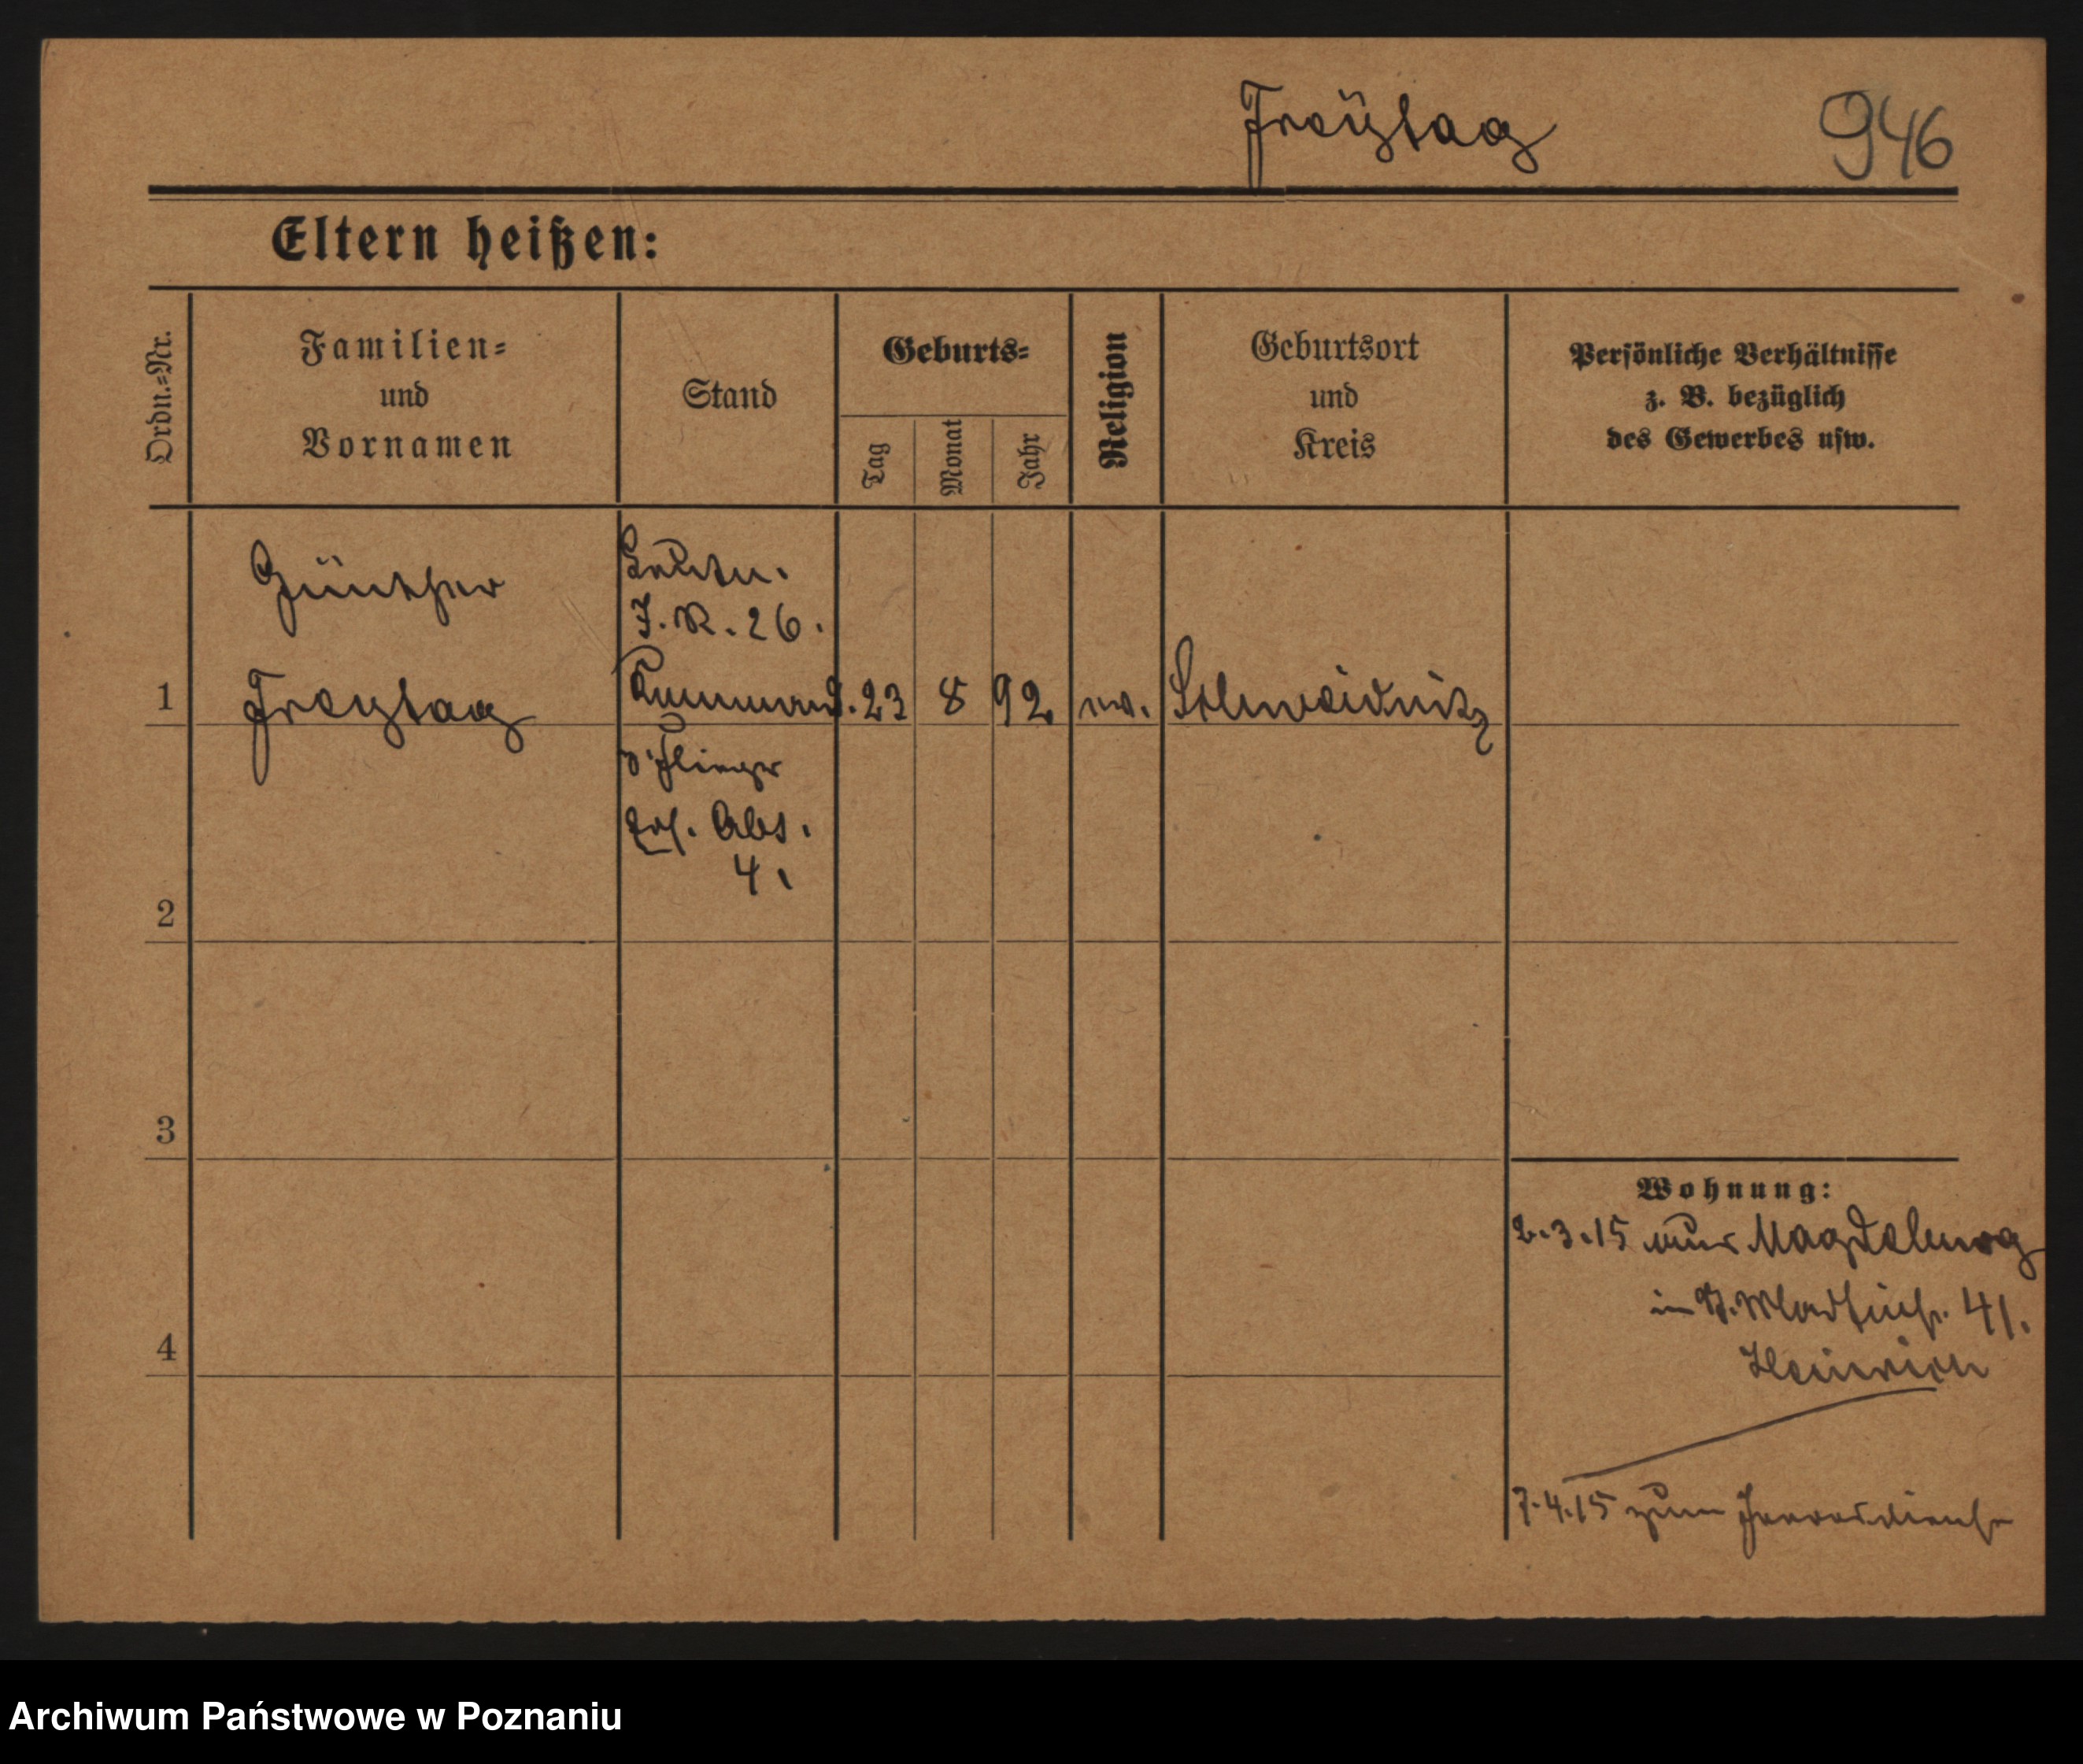 Freÿtag 946
Eltern heißen:
Ordn.=Nr.
Familien=
und
Vornamen
Stand
Geburts=
Tag
Monat
Jahr
Religion
Geburtsort
und
Kreis
Persönliche Verhältnisse
z. B. bezüglich
des Gewerbes usw.
Günther
Leutn.
J. R. 26.
1 Freytag Kommand. 23 8 92 ev. Schweidnitz
z. Flieger
Ers. Abt.
4.
2
3
4
Wohnung:
2.3.15 aus Magdeburg
in St. Martinstr. 41.
Heinrich
7.4.15 zum Heeresdienst
Archiwum Państwowe w Poznaniu